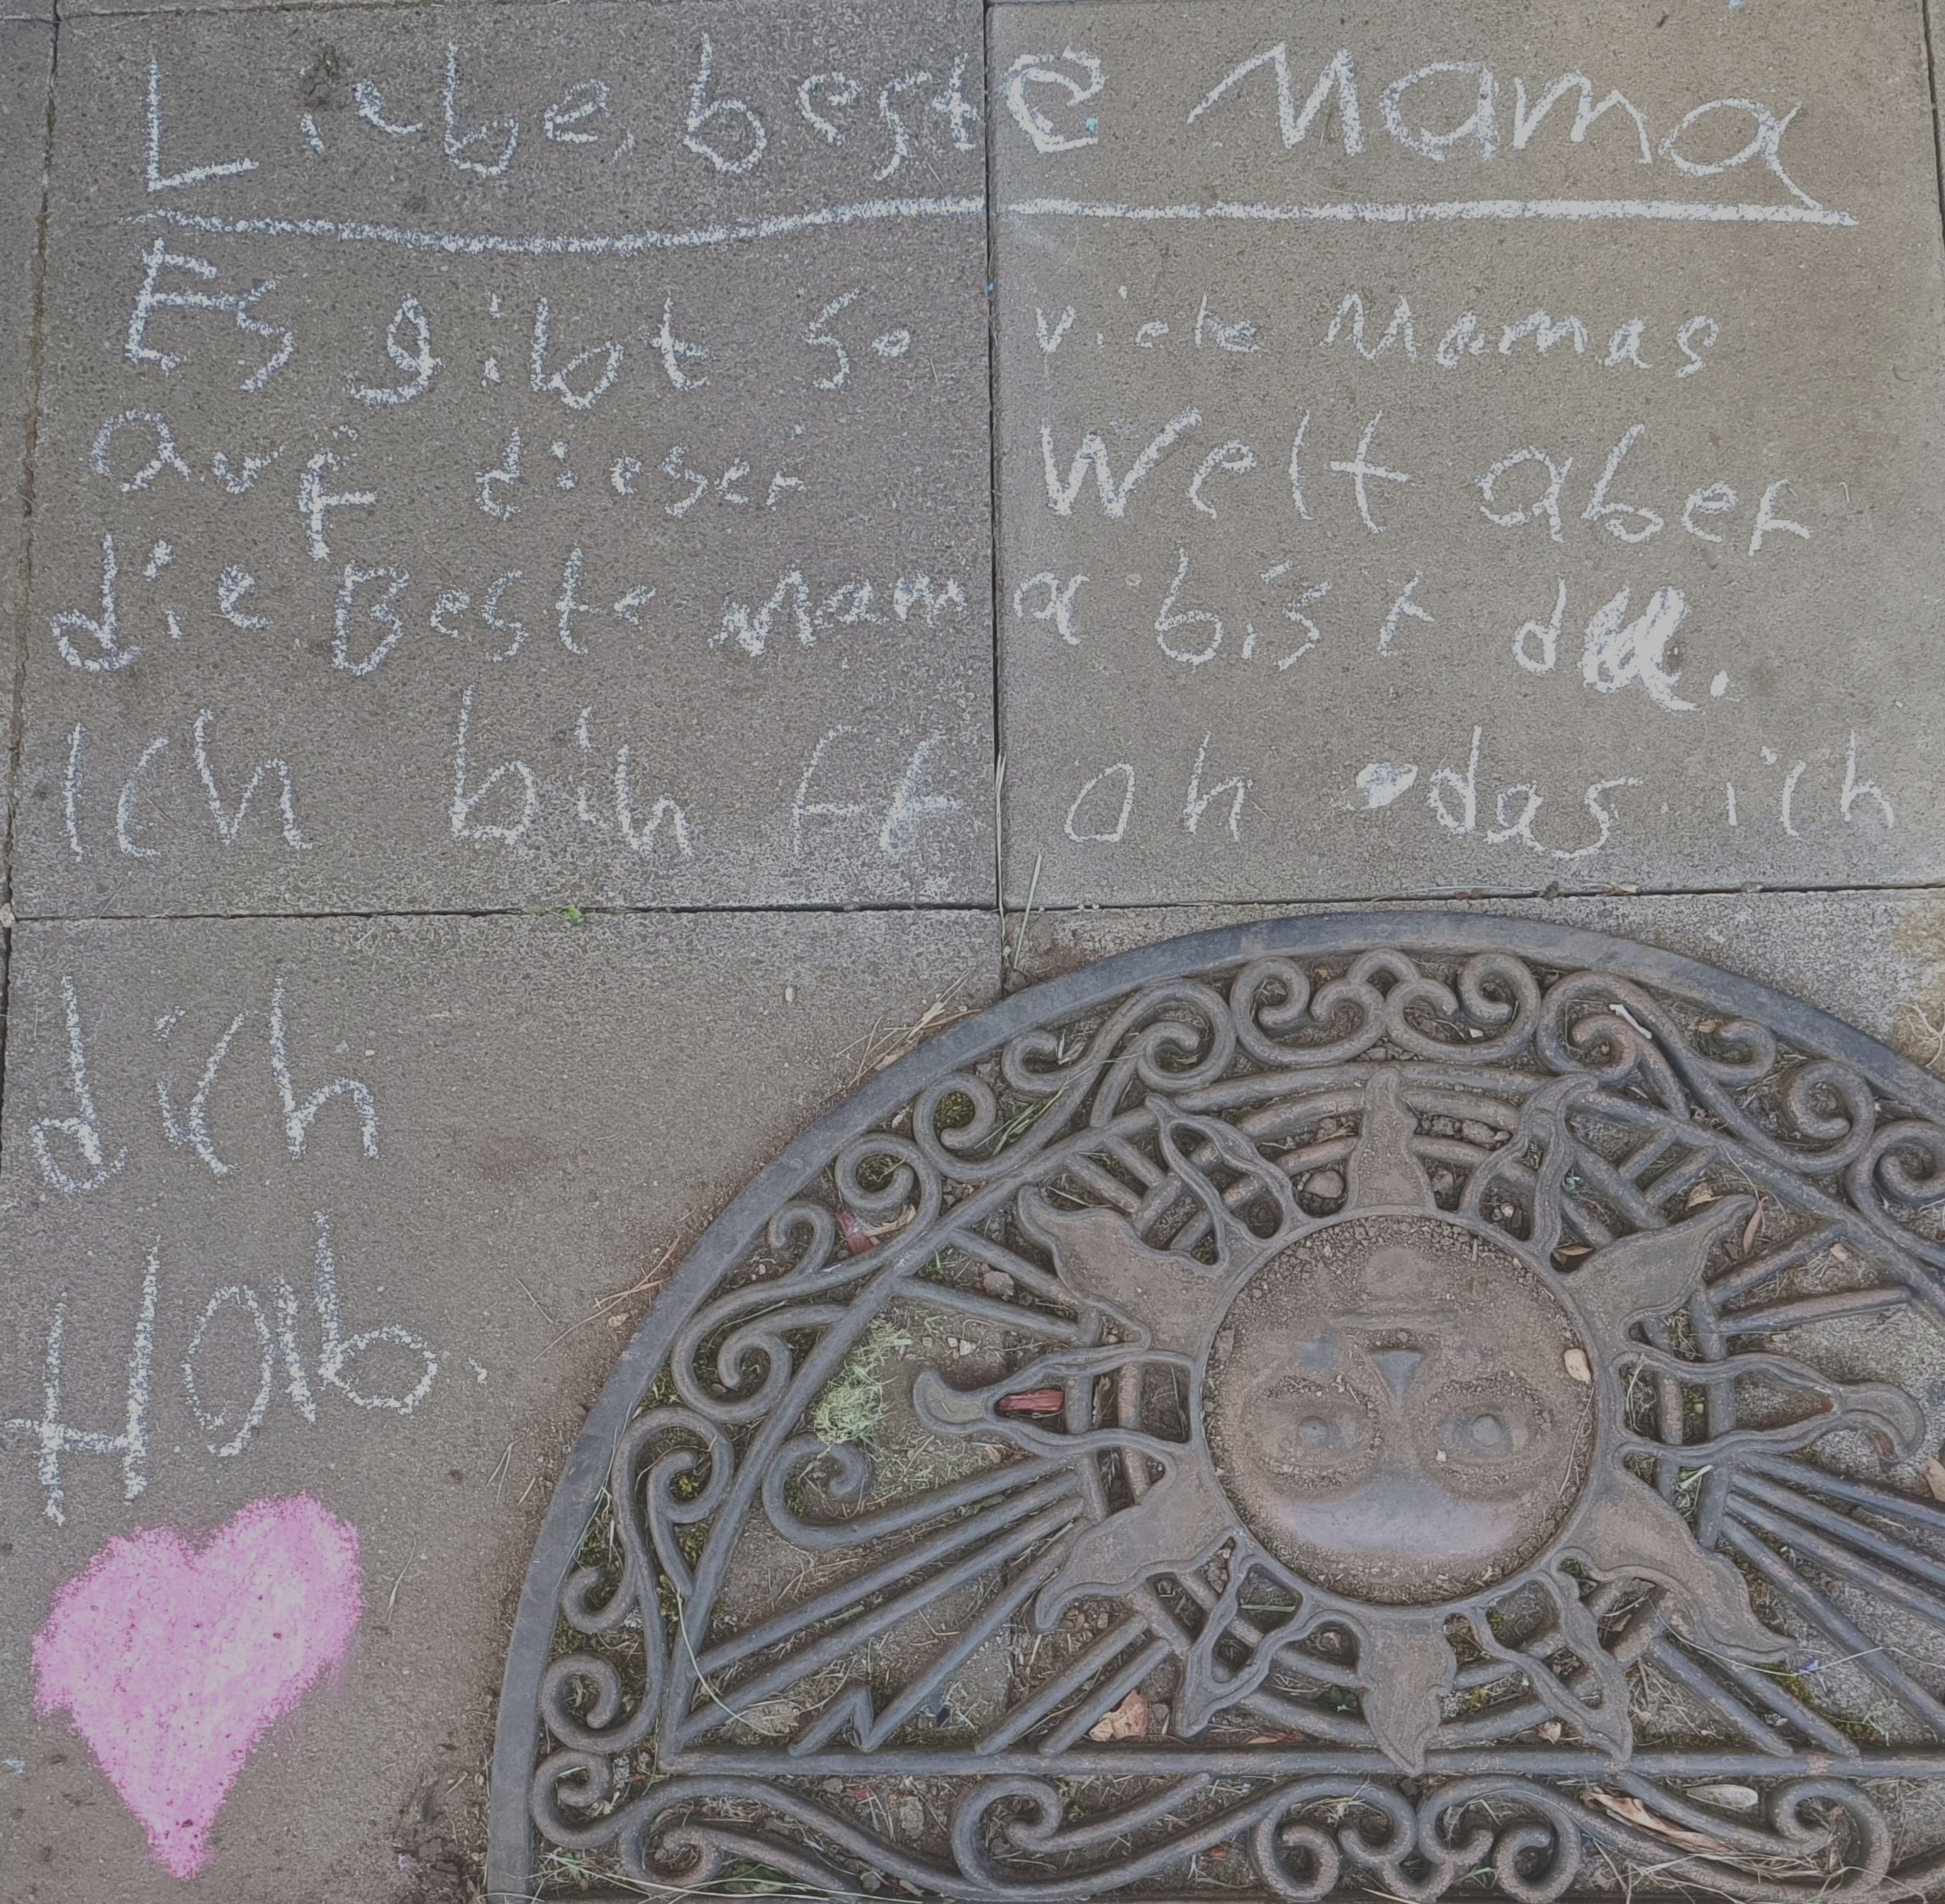 Liebe, beste Mama
Es gibt so viele Mamas
auf dieser Welt aber
die Beste Mama bist du.
Ich bin froh das ich
dich
Hab.